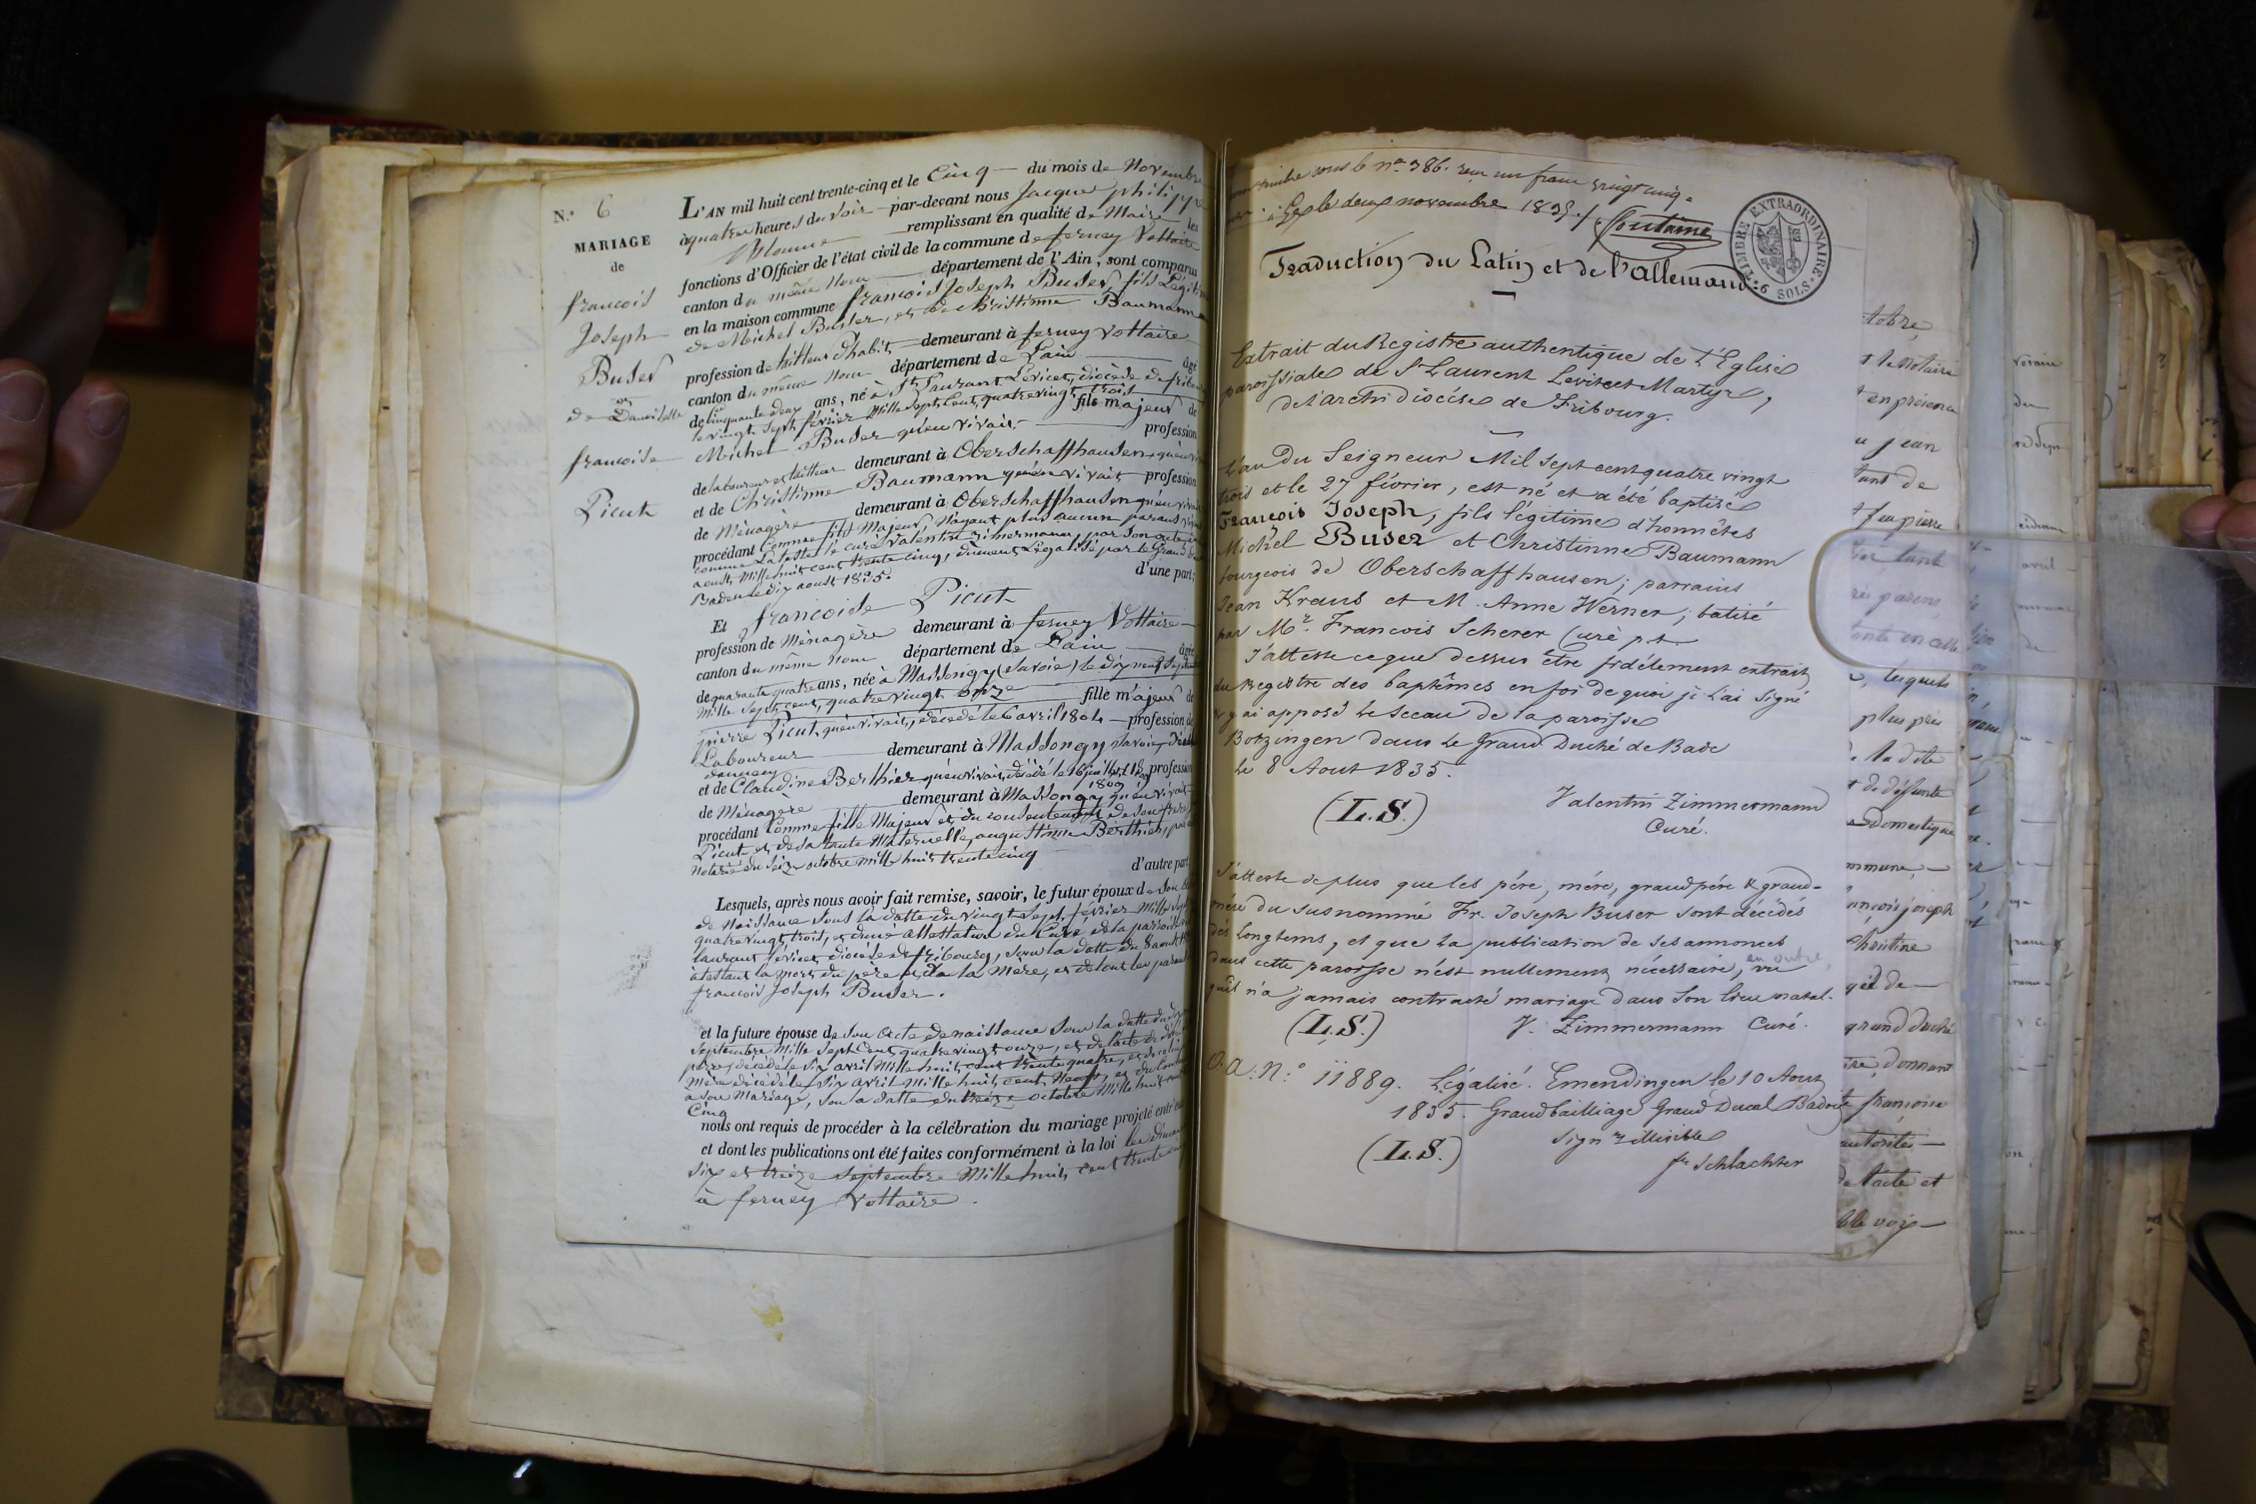 N.° 6
MARIAGE
de
francois
Joseph
Buser
et
de Damoiselle
francoise
Picut
L'AN mil huit cent trente-cinq et le Cinq du mois de Novembre
à quatre heures du soir par-devant nous Jacque philippe
remplissant en qualité de Maire les
fonctions d'Officier de l'état civil de la commune de ferney Voltaire
canton du même Nom département de l'Ain, sont comparus
en la maison commune francois Joseph Buser, fils Légitime
de Michel Buser, et de Christinne Baumann
profession de tailleur d'habit demeurant à ferney Voltaire
canton du même Nom département de L'ain âgé
de Cinquante deux ans, né à St Laurant Levicet, diocèse de fribourg
le vingt Sept février Mille Sept Cent quatre vingt trois fils majeur de
Michel Buser quen vivait profession
de laboureur et tailleur demeurant à Oberschaffhausen, quen
et de Christinne Baumann quen vivait profession
de Ménagère demeurant à Oberschaffhausen quen vivait
procédant Comme fils Majeur, Nayant plus aucun parans
comme L'atteste le curé Valentin Zimermann, par son acte
aoust Mille huit cent trente cinq, dûment Légalisé par le Grand
Baden le dix aoust 1835. d'une part;
Et francoise Picut
profession de Ménagère demeurant à ferney Voltaire
canton du même Nom département de L'ain âgée
de quarante quatre ans, née à Massongy (Savoie) le dix neuf Septembre
Mille Sept cent, quatre vingt onze fille majeur de
pierre Picut quen vivait, décédé le 6 avril 1804 profession de
Laboureur demeurant à Massongy Savoie
et de Claudine Berthier quen vivait, décédé le 16 juillet 1809 profession
de Ménagère demeurant à Massongy quen vivait
procédant Comme fille Majeur et du consentement de son frère
Picut et de sa tante Maternelle, augustinne Berthier, par
Notarié du Seize octobre mille huit trente cinq d'autre part
Lesquels, après nous avoir fait remise, savoir, le futur époux de Son
de Naissance Sous la datte du vingt Sept février Mille Sept
quatre vingt trois, et d'une attestation du Curé de la paroisse
laurant Levicet diocèse de fribourg, sous la datte du 8 aoust
attestant la mort du père et de la Mère, et de tout les parans
francois Joseph Buser.
et la future épouse de Son acte de naissance Sous la datte du
Septembre Mille Sept Cent quatre vingt onze, et de l'acte de
père, décédé le Six avril Mille huit cent trente quatre, et de
Mère décédé le Six avril Mille huit cent Neuf, et du
a Son Mariage, Sous la datte du treize octobre Mille huit
Cinq
nous ont requis de procéder à la célébration du mariage projeté entre
et dont les publications ont été faites conformément à la loi les dimanches
Six et treize Septembre Mille huit cent trente
à ferney Voltaire.
timbre sous le no 386. reçu un franc vingt cinq
à Gex le deux novembre 1835.
TIMBRE EXTRAORDINAIRE
6 SOLS
Traduction du Latin et de l'Allemand.
Extrait du Registre authentique de l'Eglise
paroissiale de St Laurent Levite et Martyr,
de l'archidiocèse de Fribourg.
L'an du Seigneur Mil sept cent quatre vingt
trois et le 27 février, est né et a été baptisé
François Joseph, fils légitime d'honnêtes
Michel Buser et Christinne Baumann
bourgeois de Oberschaffhausen; parrains
Jean Kraus et M. Anne Werner; batisé
par Mr. Francois Scherer Curé p.t.
J'atteste ce que dessus être fidélement extrait
du Registre des baptêmes en foi de quoi je l'ai signé
et y ai apposé le Sceau de la paroisse
Botzingen dans le Grand Duché de Bade
le 8 Aout 1835.
(L.S.) Valentin Zimmermann
Curé.
J'atteste de plus que les père, mére, grand père & grand-
mére du susnommé Fr. Joseph Buser sont décédés
dès longtems, et que la publication de ses annonces
dans cette paroisse n'est nullement nécessaire, en outre, vu
qu'il n'a jamais contracté mariage dans son lieu natal.
(L.S.) V. Zimmermann Curé.
O.A.N.° 11889. Légalisé. Emendingen le 10 Aout
1835. Grand bailliage Grand Ducal Badois
(L.S.) Signre illisible
fr Schlachter
le Notaire
en présence
jean
tant de
feu pierre
tante
parens
lesquels
plus près
de la dite
de défunte
Domestique
commune
françois joseph
Christine
âgé de
grand duché
donnant
françoise
autorités
de l'acte et